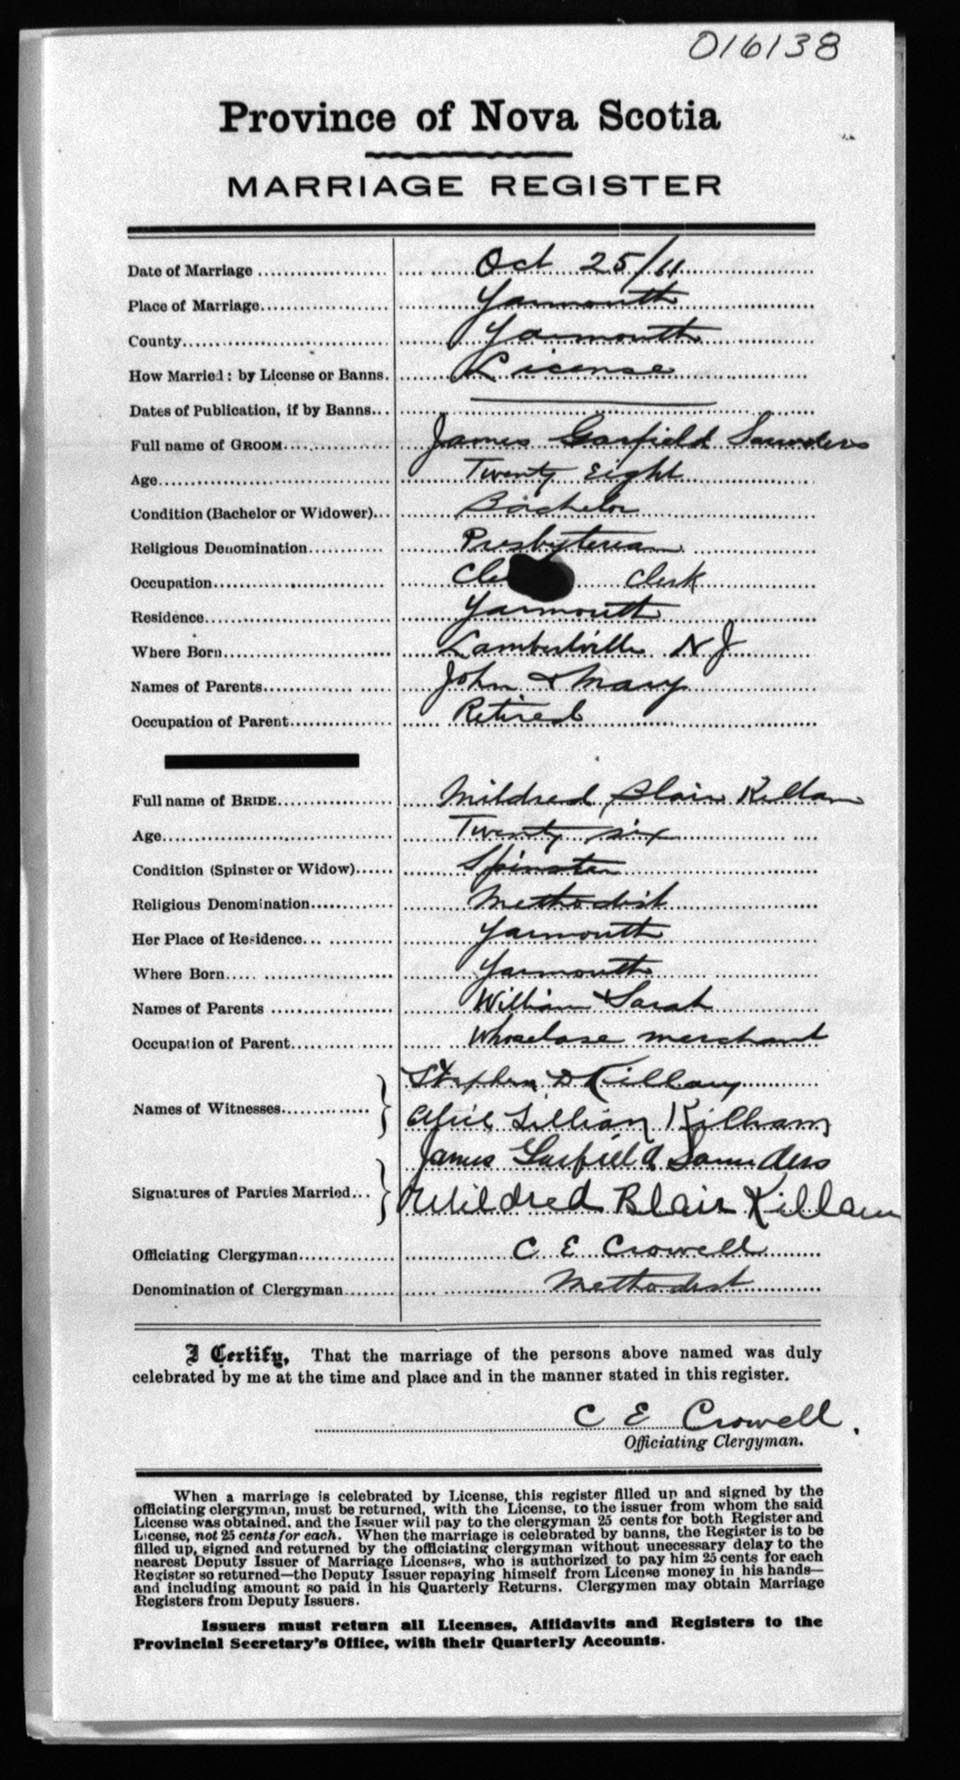 016138
Province of Nova Scotia
MARRIAGE REGISTER
Date of Marriage Oct 25/11
Place of Marriage Yarmouth
County Yarmouth
How Married: by License or Banns. License
Dates of Publication, if by Banns
Full name of GROOM James Garfield Saunders
Age Twenty Eight
Condition (Bachelor or Widower) Bachelor
Religious Denomination Presbyterian
Occupation Cle Clerk
Residence Yarmouth
Where Born Lambertville N J
Names of Parents John & Mary
Occupation of Parent Retired
Full name of BRIDE Mildred Blair Killam
Age Twenty six
Condition (Spinster or Widow) Spinster
Religious Denomination Methodist
Her Place of Residence Yarmouth
Where Born Yarmouth
Names of Parents William & Sarah
Occupation of Parent Wholelase merchant
Names of Witnesses Stephen D Killam
Lillian Killam
Signatures of Parties Married James Garfield Saunders
Mildred Blair Killam
Officiating Clergyman C E Crowell
Denomination of Clergyman Methodist
I Certify, That the marriage of the persons above named was duly
celebrated by me at the time and place and in the manner stated in this register.
C E Crowell.
Officiating Clergyman.
When a marriage is celebrated by License, this register filled up and signed by the
officiating clergyman, must be returned, with the License, to the issuer from whom the said
License was obtained, and the Issuer will pay to the clergyman 25 cents for both Register and
License, not 25 cents for each. When the marriage is celebrated by banns, the Register is to be
filled up, signed and returned by the officiating clergyman without unecessary delay to the
nearest Deputy Issuer of Marriage Licenses, who is authorized to pay him 25 cents for each
Register so returned—the Deputy Issuer repaying himself from License money in his hands—
and including amount so paid in his Quarterly Returns. Clergymen may obtain Marriage
Registers from Deputy Issuers.
Issuers must return all Licenses, Affidavits and Registers to the
Provincial Secretary's Office, with their Quarterly Accounts.